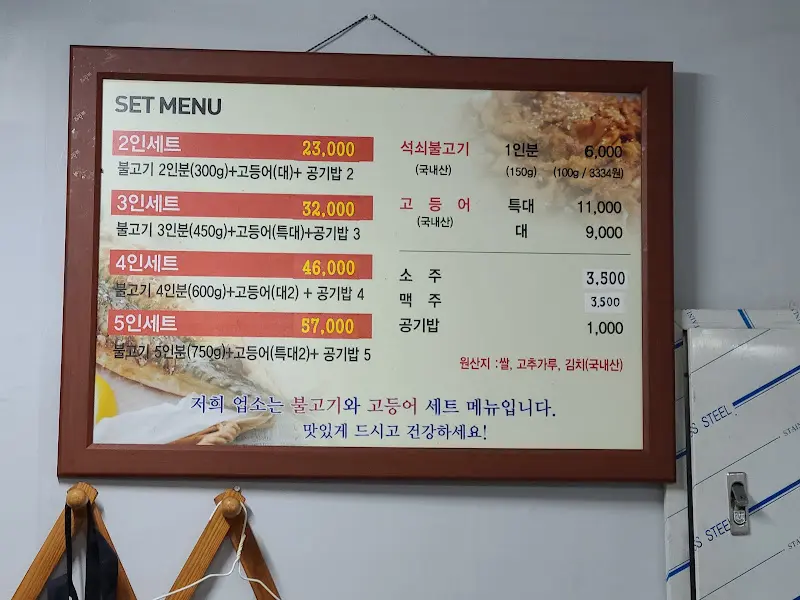 SET MENU
2인세트 23,000
불고기 2인분(300g)+고등어(대)+ 공기밥 2
3인세트 32,000
불고기 3인분(450g)+고등어(특대)+공기밥 3
4인세트 46,000
불고기 4인분(600g)+고등어(대2) + 공기밥 4
5인세트 57,000
불고기 5인분(750g)+고등어(특대2)+ 공기밥 5
석쇠불고기 1인분 6,000
(국내산) (150g) (100g / 3334원)
고 등 어 특대 11,000
(국내산)
대 9,000
소 주 3,500
맥 주 3,500
공기밥 1,000
원산지 :쌀, 고추가루, 김치(국내산)
저희 업소는 불고기와 고등어 세트 메뉴입니다.
맛있게 드시고 건강하세요!
SS STEEL
STAI
SS STEEL
STA